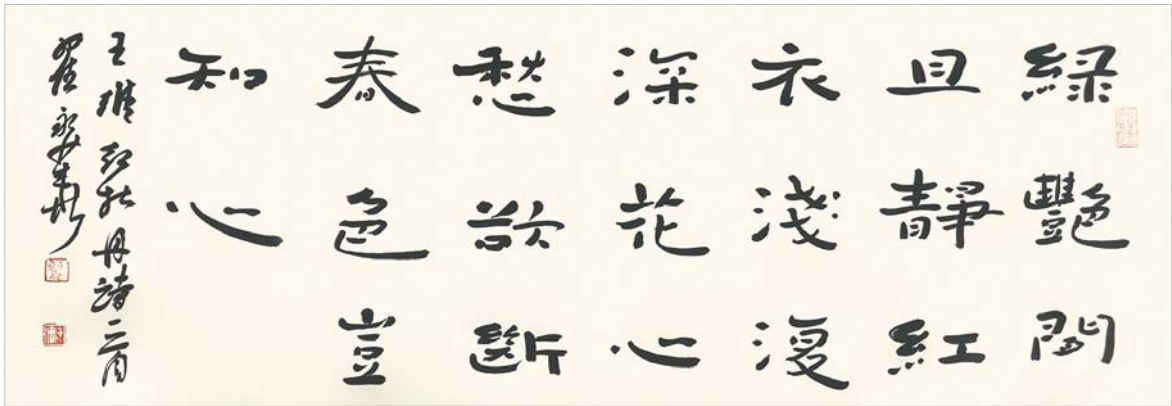 綠艷閒
且靜紅
衣淺復
深花心
愁欲斷
春色豈
知心
王維紅牡丹詩一首